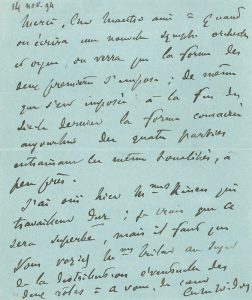 14 nov. 94
Merci, cher Maestro ami = Quand
on écrira une nouvelle symph. orchestre
et orgue, on verra que la forme des
deux premières s'impose ; de même
que s'est imposée à la fin du
siècle dernier la forme consacrée
aujourd'hui des quatre parties
entraînant les mêmes tonalités, à
peu près.
J'ai ouï hier
travailleur ; je crois que ce
sera superbe, mais il faut que
vous voyiez au sujet
de la distribution éventuelle des
deux rôles = à vous, de cœur
Ch M Widor